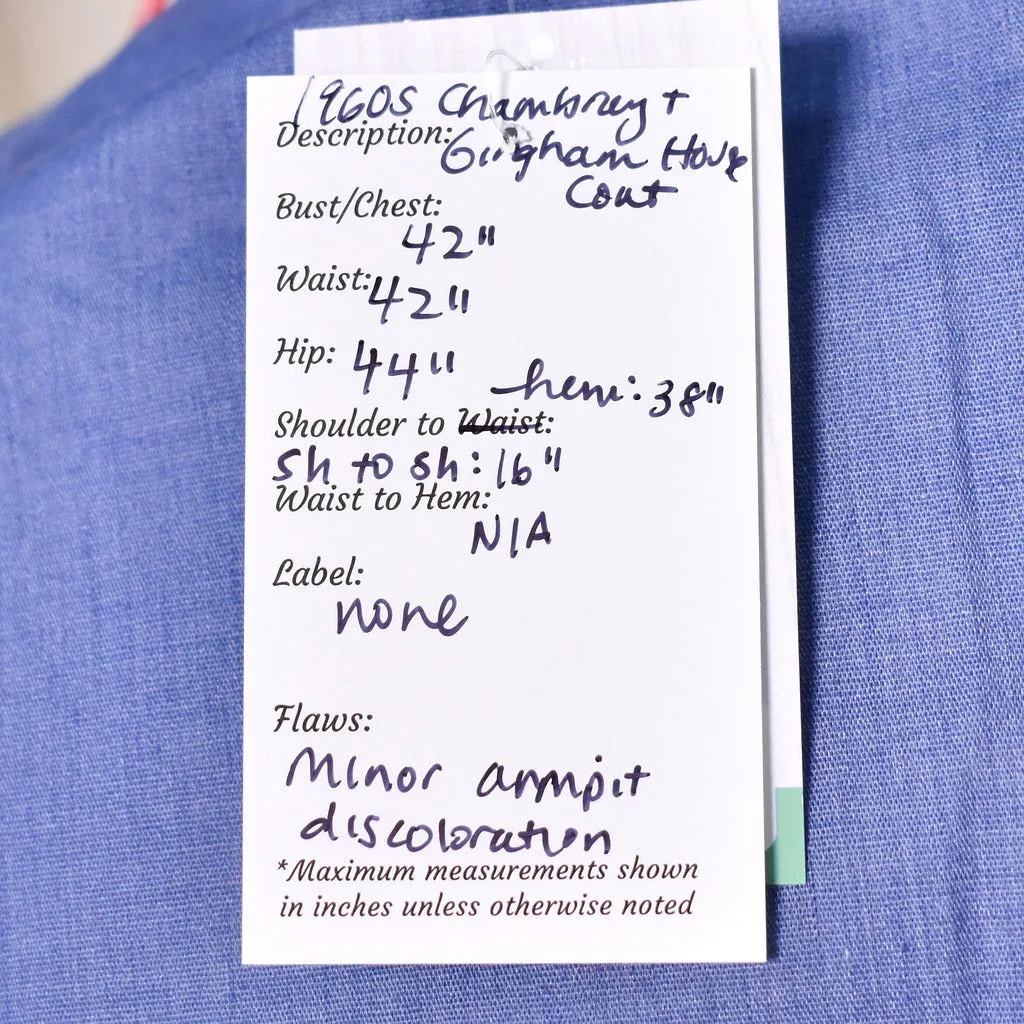 1960s Chambray +
Description: Gingham House
Coat
Bust/Chest:
42"
Waist: 42"
Hip: 44"
hem: 38"
Shoulder to Waist:
Sh to Sh: 16"
Waist to Hem:
N/A
Label:
none
Flaws:
Minor armpit
discoloration
*Maximum measurements shown
in inches unless otherwise noted